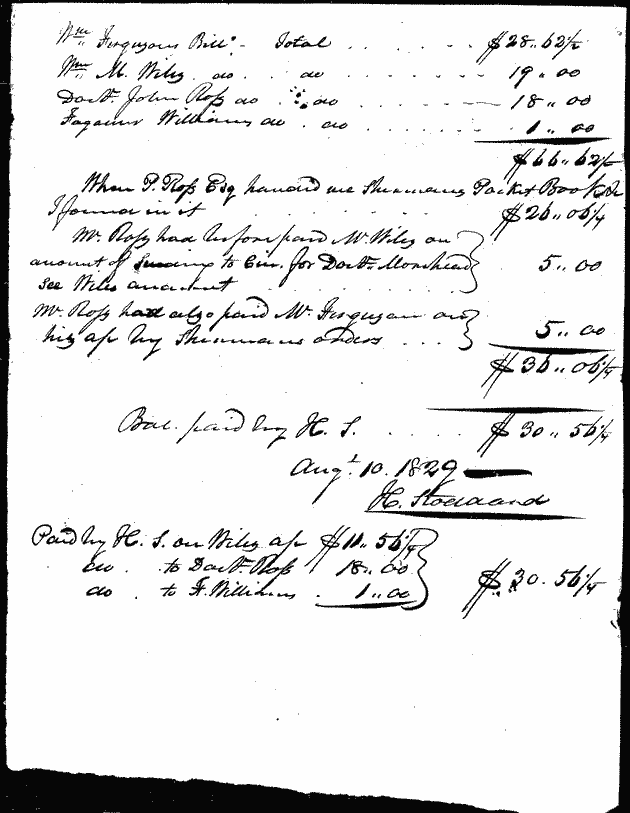 Wm Fergusons Bill - Total . . . . . . $28..62 1/2
Wm M. Wiley do . . do . . . . . . 19..00
Doctr. John Ross do . . do . . . . . . 18..00
Williams do . do . . . . . 1..00
$66..62 1/2
When P. Ross Esq handed me Shermans Pocket Book
I found in it . . . . . $26..06 1/4
Mr. Ross had before paid Mr Wiley on
amount of going to Cin. for Doctr. Morehead
See Wileys amount . . . . . 5..00
Mr. Ross had also paid Mr Ferguson on
his a/c by Shermans orders . . . 5..00
$36..06 1/4
Bal. paid by H. S. . . . . $30..56 1/4
Augt. 10. 1829
H. Stoddard
Paid by H. S. on Wileys a/c $11..56 1/4
do . to Doctr. Ross 18..00
do . to F. Williams . 1..00
$30.56 1/4